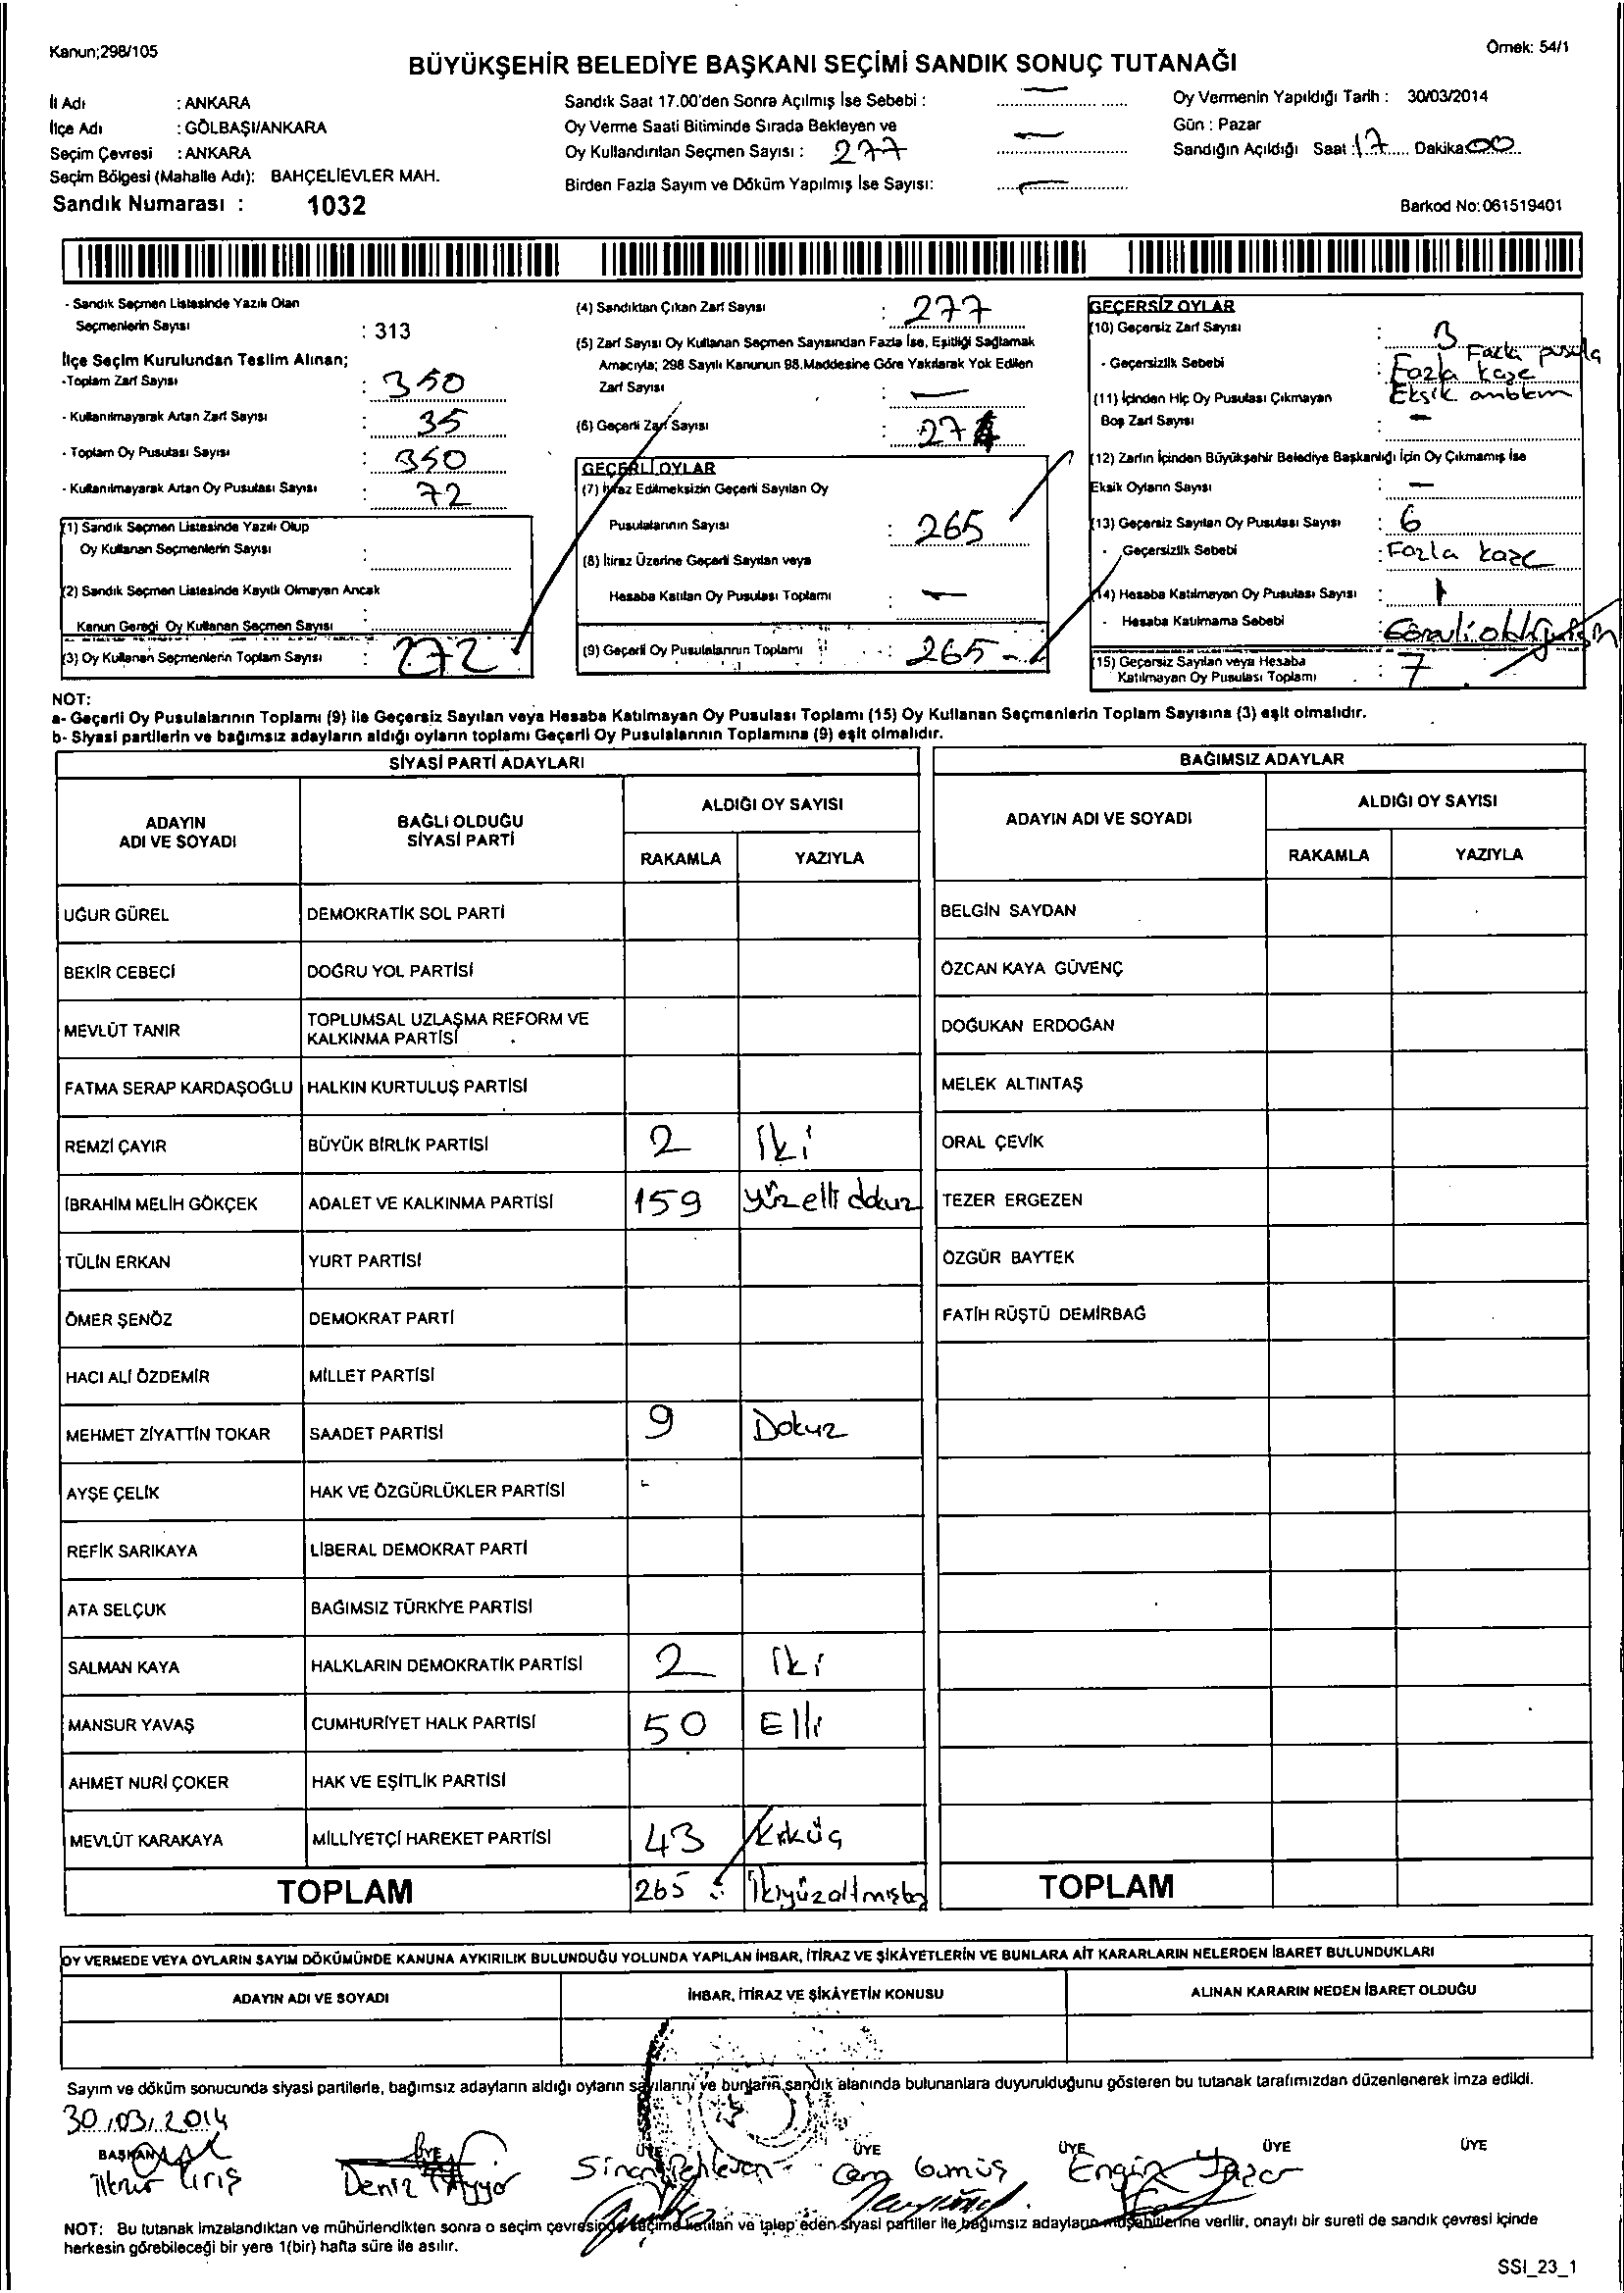 Kanun;298/105
Örnek: 54/1
BÜYÜKŞEHİR BELEDİYE BAŞKANI SEÇİMİ SANDIK SONUÇ TUTANAĞI
İl Adı : ANKARA
İlçe Adı : GÖLBAŞI/ANKARA
Seçim Çevresi : ANKARA
Seçim Bölgesi (Mahalle Adı): BAHÇELİEVLER MAH.
Sandık Numarası : 1032
Sandık Saat 17.00'den Sonra Açılmış İse Sebebi : —
Oy Verme Saati Bitiminde Sırada Bekleyen ve —
Oy Kullandırılan Seçmen Sayısı : 277
Birden Fazla Sayım ve Döküm Yapılmış İse Sayısı: —
Oy Vermenin Yapıldığı Tarih : 30/03/2014
Gün : Pazar
Sandığın Açıldığı Saat : 17 Dakika 00
Barkod No: 061519401
- Sandık Seçmen Listesinde Yazılı Olan
Seçmenlerin Sayısı : 313
İlçe Seçim Kurulundan Teslim Alınan;
-Toplam Zarf Sayısı : 350
- Kullanılmayarak Artan Zarf Sayısı : 35
- Toplam Oy Pusulası Sayısı : 350
- Kullanılmayarak Artan Oy Pusulası Sayısı : 72
(1) Sandık Seçmen Listesinde Yazılı Olup
Oy Kullanan Seçmenlerin Sayısı :
(2) Sandık Seçmen Listesinde Kayıtlı Olmayan Ancak
Kanun Gereği Oy Kullanan Seçmen Sayısı :
(3) Oy Kullanan Seçmenlerin Toplam Sayısı : 272
(4) Sandıktan Çıkan Zarf Sayısı : 277
(5) Zarf Sayısı Oy Kullanan Seçmen Sayısından Fazla İse, Eşitliği Sağlamak
Amacıyla; 298 Sayılı Kanunun 98.Maddesine Göre Yakılarak Yok Edilen
Zarf Sayısı : —
(6) Geçerli Zarf Sayısı : 274
GEÇERLİ OYLAR
(7) İtiraz Edilmeksizin Geçerli Sayılan Oy
Pusulalarının Sayısı : 265
(8) İtiraz Üzerine Geçerli Sayılan veya
Hesaba Katılan Oy Pusulası Toplamı : —
(9) Geçerli Oy Pusulalarının Toplamı : 265
GEÇERSİZ OYLAR
(10) Geçersiz Zarf Sayısı : 3
- Geçersizlik Sebebi : Fazla pusula
Fazla kaşe
Eksik amblem
(11) İçinden Hiç Oy Pusulası Çıkmayan
Boş Zarf Sayısı : —
(12) Zarfın İçinden Büyükşehir Belediye Başkanlığı İçin Oy Çıkmamış İse
Eksik Oyların Sayısı : —
(13) Geçersiz Sayılan Oy Pusulası Sayısı : 6
- Geçersizlik Sebebi : Fazla kaşe
(14) Hesaba Katılmayan Oy Pusulası Sayısı : 1
- Hesaba Katılmama Sebebi :
(15) Geçersiz Sayılan veya Hesaba
Katılmayan Oy Pusulası Toplamı : 7
NOT:
a- Geçerli Oy Pusulalarının Toplamı (9) ile Geçersiz Sayılan veya Hesaba Katılmayan Oy Pusulası Toplamı (15) Oy Kullanan Seçmenlerin Toplam Sayısına (3) eşit olmalıdır.
b- Siyasi partilerin ve bağımsız adayların aldığı oyların toplamı Geçerli Oy Pusulalarının Toplamına (9) eşit olmalıdır.
SİYASİ PARTİ ADAYLARI
ADAYIN ADI VE SOYADI
BAĞLI OLDUĞU SİYASİ PARTİ
ALDIĞI OY SAYISI
RAKAMLA YAZIYLA
UĞUR GÜREL DEMOKRATİK SOL PARTİ
BEKİR CEBECİ DOĞRU YOL PARTİSİ
MEVLÜT TANIR TOPLUMSAL UZLAŞMA REFORM VE KALKINMA PARTİSİ
FATMA SERAP KARDAŞOĞLU HALKIN KURTULUŞ PARTİSİ
REMZİ ÇAYIR BÜYÜK BİRLİK PARTİSİ 2 İki
İBRAHİM MELİH GÖKÇEK ADALET VE KALKINMA PARTİSİ 159 yüzelli dokuz
TÜLİN ERKAN YURT PARTİSİ
ÖMER ŞENÖZ DEMOKRAT PARTİ
HACI ALİ ÖZDEMİR MİLLET PARTİSİ
MEHMET ZİYATTİN TOKAR SAADET PARTİSİ 9 Dokuz
AYŞE ÇELİK HAK VE ÖZGÜRLÜKLER PARTİSİ -
REFİK SARIKAYA LİBERAL DEMOKRAT PARTİ
ATA SELÇUK BAĞIMSIZ TÜRKİYE PARTİSİ
SALMAN KAYA HALKLARIN DEMOKRATİK PARTİSİ 2 İki
MANSUR YAVAŞ CUMHURİYET HALK PARTİSİ 50 Elli
AHMET NURİ ÇOKER HAK VE EŞİTLİK PARTİSİ
MEVLÜT KARAKAYA MİLLİYETÇİ HAREKET PARTİSİ 43 Kırküç
TOPLAM 265 İkiyüzaltmışbeş
BAĞIMSIZ ADAYLAR
ADAYIN ADI VE SOYADI
ALDIĞI OY SAYISI
RAKAMLA YAZIYLA
BELGİN SAYDAN
ÖZCAN KAYA GÜVENÇ
DOĞUKAN ERDOĞAN
MELEK ALTINTAŞ
ORAL ÇEVİK
TEZER ERGEZEN
ÖZGÜR BAYTEK
FATİH RÜŞTÜ DEMİRBAĞ
TOPLAM
OY VERMEDE VEYA OYLARIN SAYIM DÖKÜMÜNDE KANUNA AYKIRILIK BULUNDUĞU YOLUNDA YAPILAN İHBAR, İTİRAZ VE ŞİKÂYETLERİN VE BUNLARA AİT KARARLARIN NELERDEN İBARET BULUNDUKLARI
ADAYIN ADI VE SOYADI
İHBAR, İTİRAZ VE ŞİKÂYETİN KONUSU
ALINAN KARARIN NEDEN İBARET OLDUĞU
Sayım ve döküm sonucunda siyasi partilerle, bağımsız adayların aldığı oyların sayılarını ve bunların sandık alanında bulunanlara duyurulduğunu gösteren bu tutanak tarafımızdan düzenlenerek imza edildi.
30/03/2014
BAŞKAN ÜYE ÜYE ÜYE ÜYE ÜYE ÜYE
İlknur Giriş Deniz Sinan Pehlevan Cem Gümüş Engin Yazar
NOT: Bu tutanak imzalandıktan ve mühürlendikten sonra o seçim çevresinde seçime katılan ve talep eden siyasi partiler ile bağımsız adayların müşahitlerine verilir, onaylı bir sureti de sandık çevresi içinde
herkesin görebileceği bir yere 1(bir) hafta süre ile asılır.
SSI_23_1